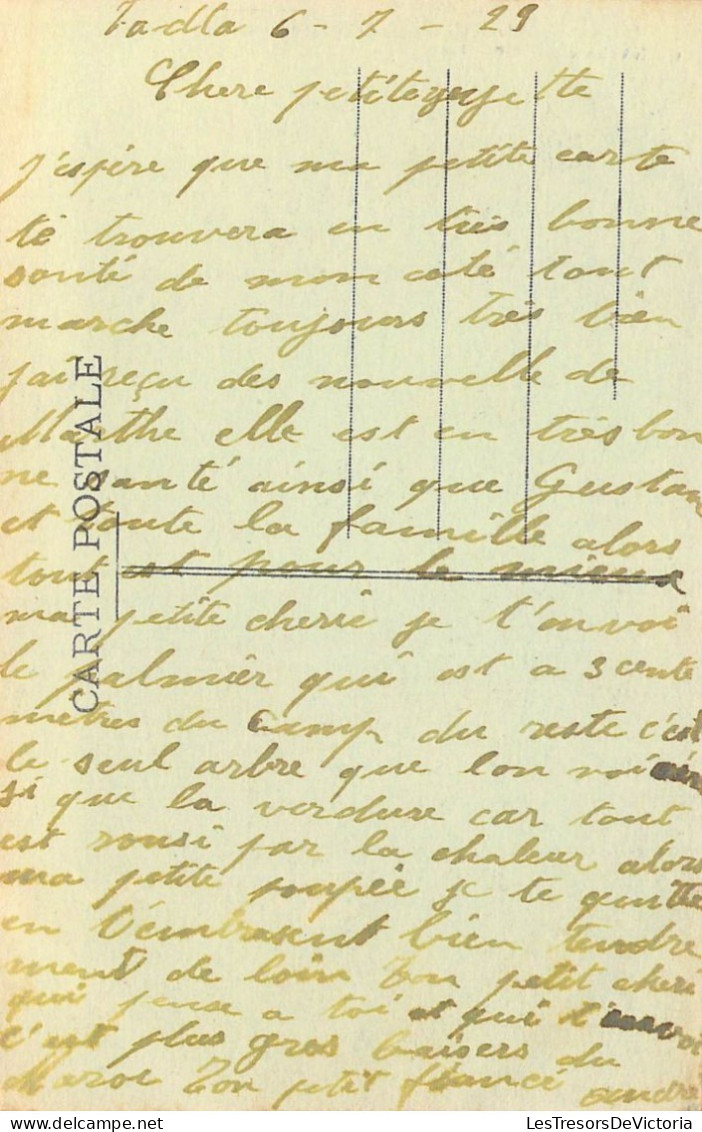 Tadla 6 - 7 - 29
Chere petite
j'espère que ma petite carte
te trouvera en très bonne
santé de mon coté tout
marche toujours très bien
jai reçu des nouvelle de
Marthe elle est en très bon
ne santé ainsi que Gustav
et toute la famille alors
tout est pour le mieux
ma petite cherie je t'envoi
le palmier qui est a 3 centi
metres du Camp du reste c'est
le seul arbre que lon voi
si que la verdure car tout
est rousi par la chaleur alors
ma petite poupée je te quitte
en t'embrasent bien tendre
ment de loin ton petit cheri
qui pense a toi et qui t'envoi
c'est plus gros baisers du
Maroc ton petit fiancé André
CARTE POSTALE
LesTresorsDeVictoria